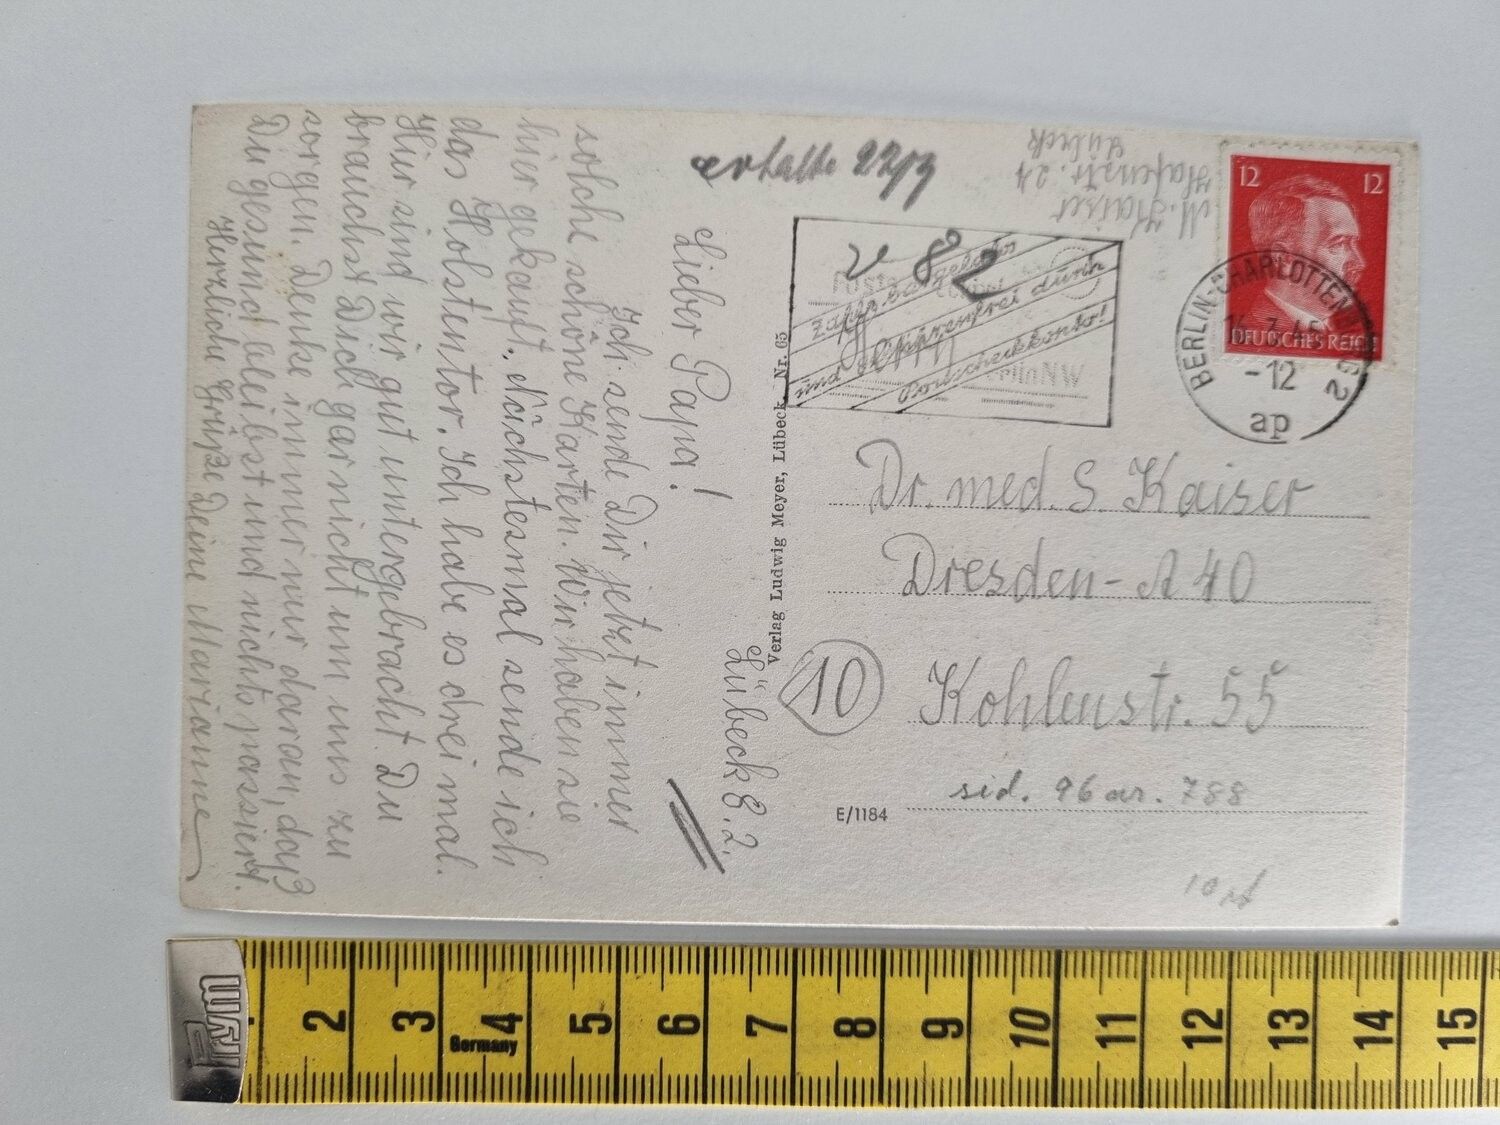 Lübeck 8. 2.
Lieber Papa!
Ich sende Dir jetzt immer
solche schöne Karten. Wir haben sie
hier gekauft. Nächstesmal sende ich
das Holstentor. Ich habe es dreimal.
Hier sind wir gut untergebracht. Du
brauchst Dich gar nicht um uns zu
sorgen. Denke immer nur daran, daß
Du gesund bleibst und nichts passiert.
Herzliche Grüße Deine Marianne
Verlag Ludwig Meyer, Lübeck, Nr. 65
erhalte 22/3
M. Kaiser
Hafenstr. 24
Lübeck
12 12
DEUTSCHES REICH
BERLIN-CHARLOTTENBURG 2
-12
ap
82
und gebührenfrei durch
Postscheckkonto!
Dr. med. S. Kaiser
Dresden-A 40
10
Kohlenstr. 55
E/1184
Prym
Germany
2 3 4 5 6 7 8 9 10 11 12 13 14 15